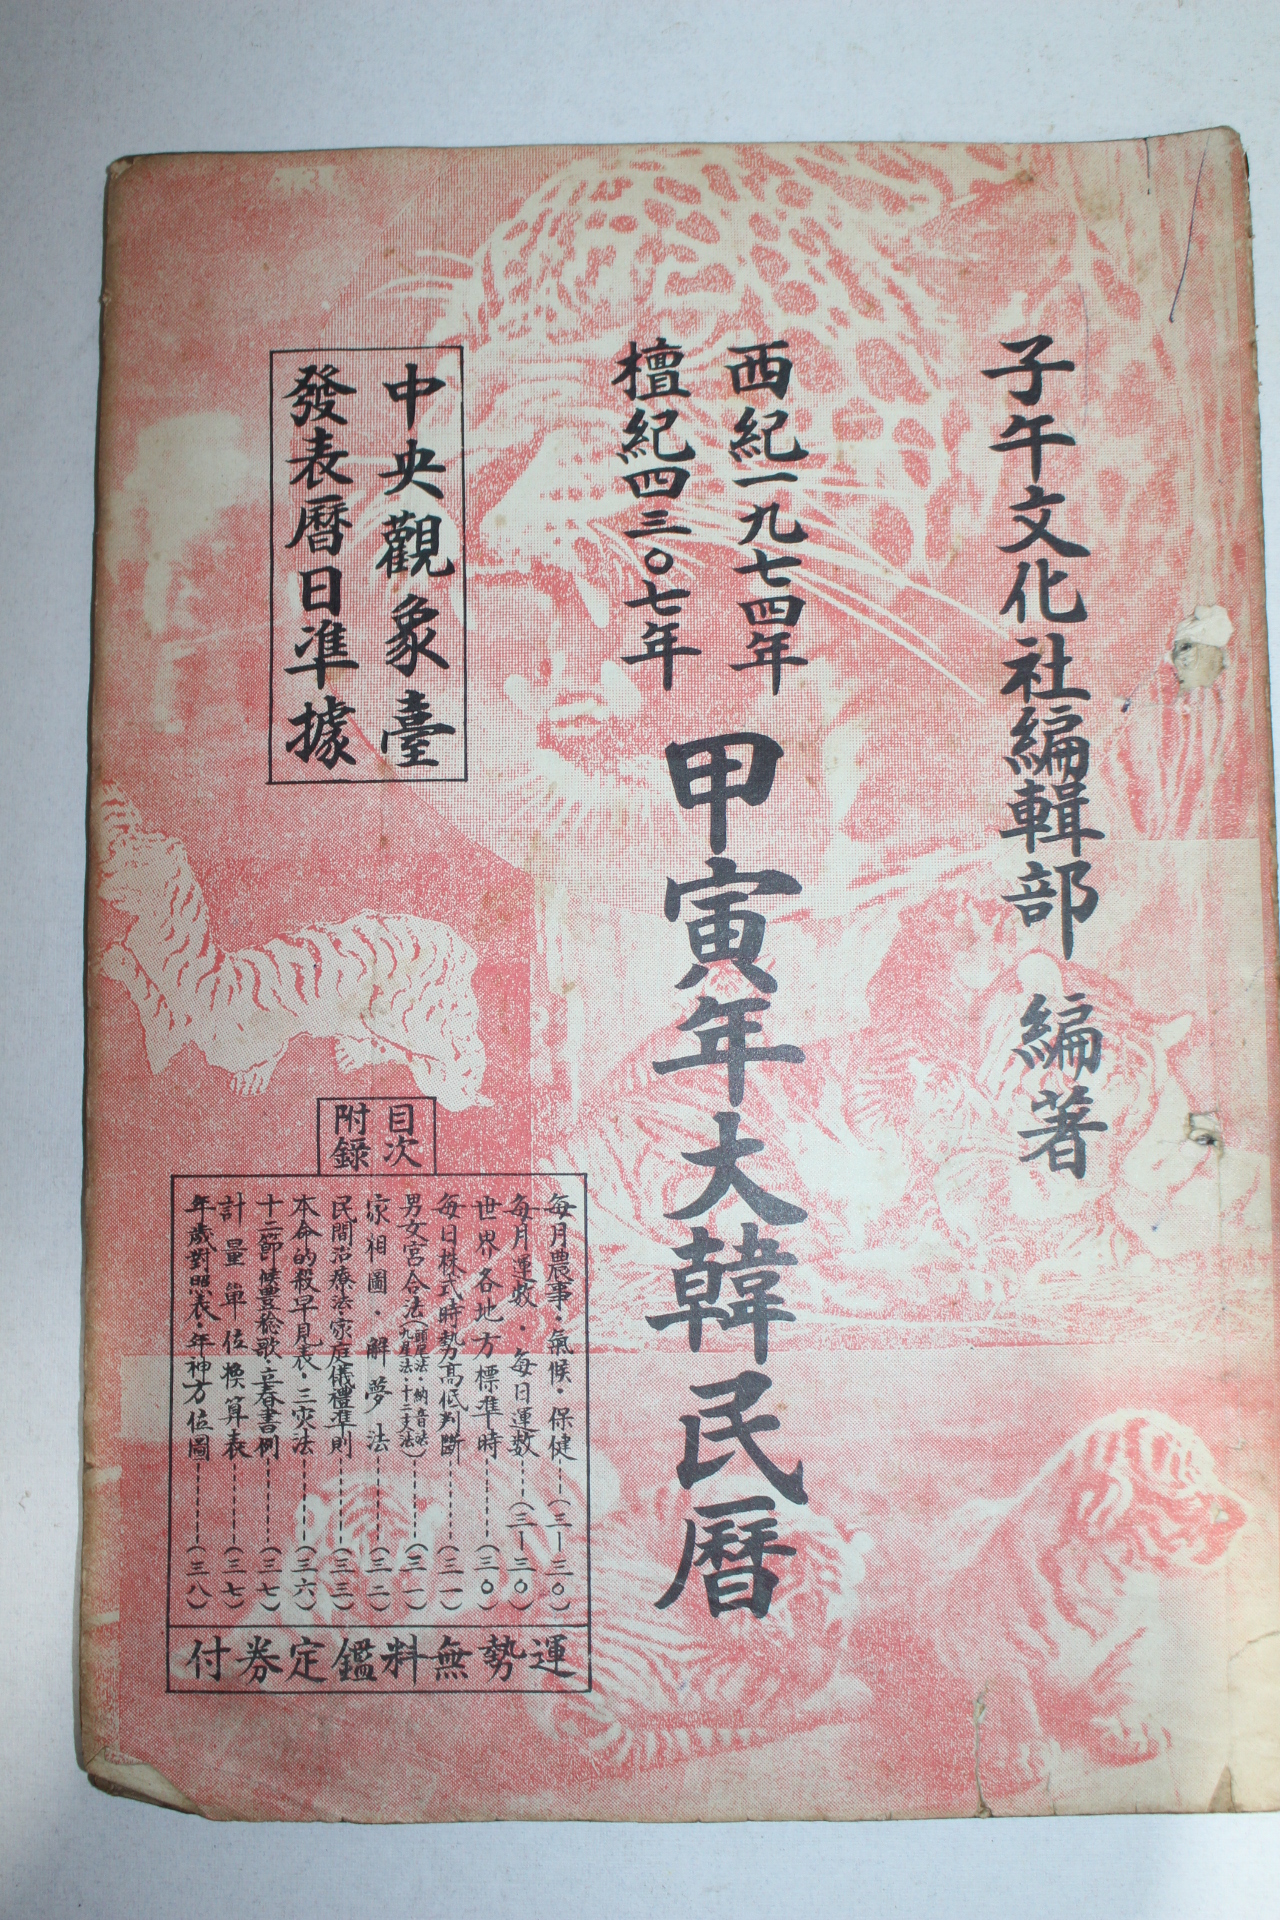 子午文化社編輯部 編著
西紀一九七四年
檀紀四三〇七年
甲寅年大韓民曆
中央觀象臺
發表曆日準據
目次
附錄
每月農事·氣候·保健(三—三〇)
每月運數·每日運數(三—三〇)
世界各地方標準時(三〇)
每日株式時勢高低判斷(三一)
男女宮合法(頭尾法·納音法 九星法·十二支法)(三一)
家相圖·解夢法(三二)
民間治療法·家庭儀禮準則(三三)
本命的殺早見表·三災法(三六)
十二節候豊稔歌·立春書例(三七)
計量單位換算表(三七)
年歲對照表·年神方位圖(三八)
運勢無料鑑定券付